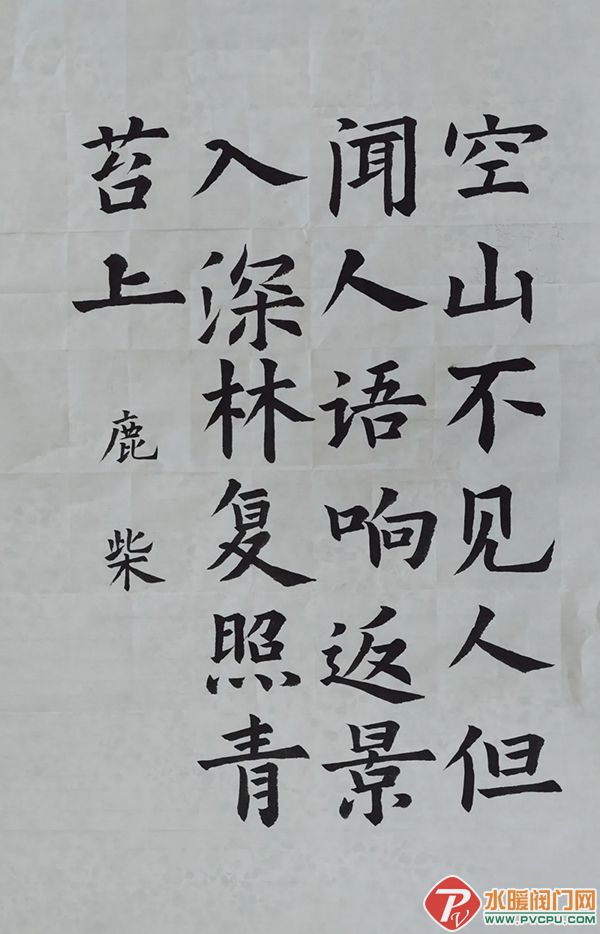 空山不见人但
闻人语响返景
入深林复照青
苔上
鹿柴
水暖阀门网
WWW.PVCPU.COM